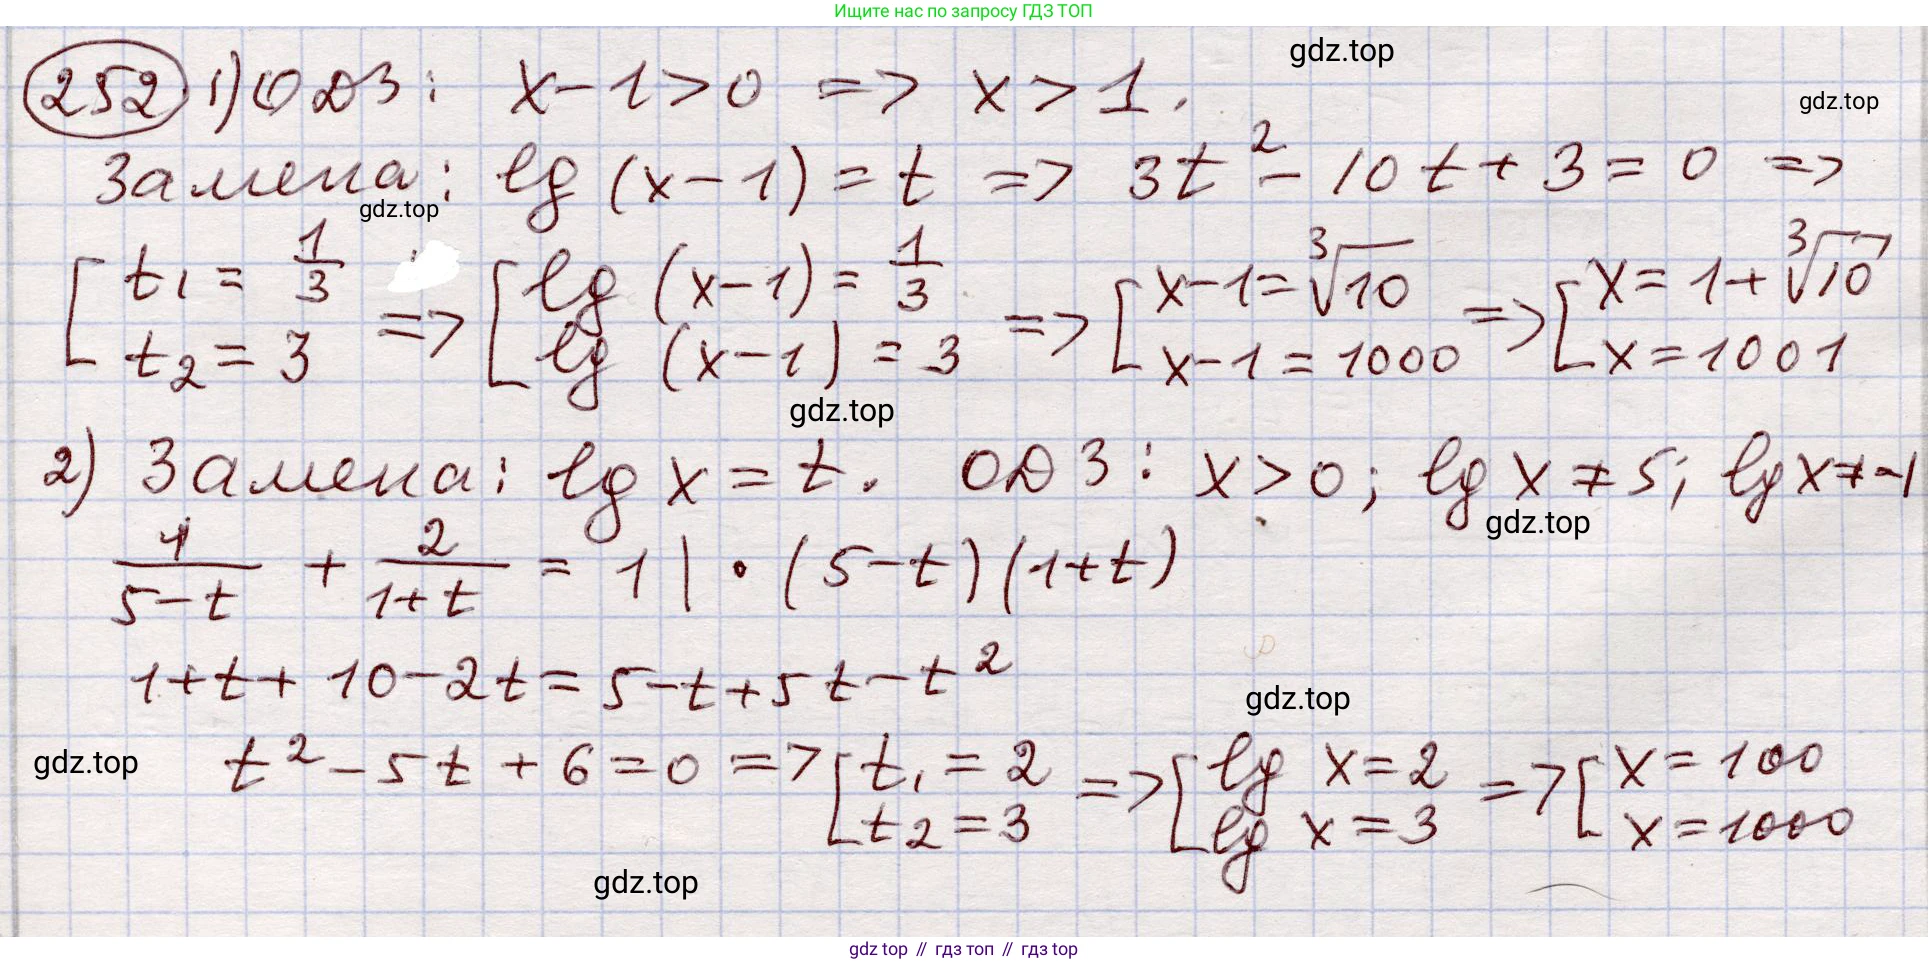 Ищите нас по запросу ГДЗ ТОП
gdz.top
252 1) ОДЗ: x-1>0 => x>1.
gdz.top
Замена: lg(x-1)=t => 3t²-10t+3=0 =>
gdz.top
[t₁=1/3 t₂=3 => [lg(x-1)=1/3 lg(x-1)=3 => [x-1=∛10 x-1=1000 => [x=1+∛10 x=1001
gdz.top
2) Замена: lg x=t. ОДЗ: x>0; lg x≠5; lg x≠-1
gdz.top
1/(5-t) + 2/(1+t) = 1 | • (5-t)(1+t)
1+t+10-2t=5-t+5t-t²
gdz.top
gdz.top
t²-5t+6=0 => [t₁=2 t₂=3 => [lg x=2 lg x=3 => [x=100 x=1000
gdz.top
gdz top // гдз топ // гдз top